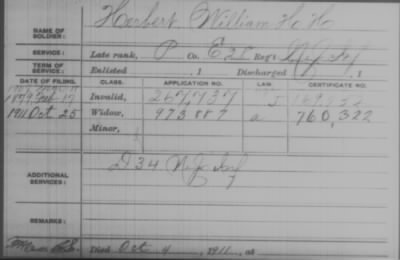 NAME OF SOLDIER: Herbert, William H. H.
SERVICE: Late rank, P Co. E 2 Reg't N.J. Inf
TERM OF SERVICE: Enlisted , 1 Discharged , 1
DATE OF FILING. CLASS. APPLICATION NO. LAW. CERTIFICATE NO.
1879 Feb 17 Invalid, 267,737
1911 Oct 25 Widow, 973.887 a 760,322
Minor,
ADDITIONAL SERVICES: D 34 N.J. Inf
REMARKS:
Died Oct 4, 1911, at